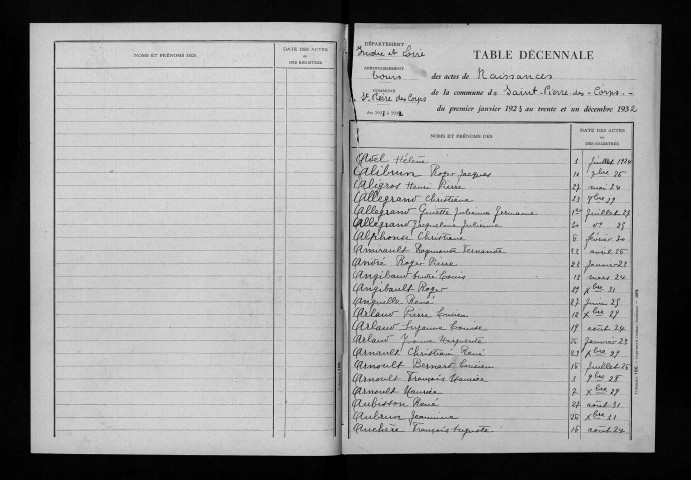 NOMS ET PRÉNOMS DES
DATE DES ACTES
ou
DES REGISTRES
DÉPARTEMENT
Indre et Loire
ARRONDISSEMENT
Tours
COMMUNE
St Pierre des Corps
TABLE DÉCENNALE
des actes de Naissances
de la commune de Saint-Pierre-des-Corps.-
du premier janvier 1923 au trente et un décembre 1932
NOMS ET PRÉNOMS DES
DATE DES ACTES
ou
DES REGISTRES
Abel Hélène 3 juillet 1924
Alibrun Roger Jacques 10 9bre 26
Aligros Henri Pierre 27 mai 24
Allegrand Christiane 23 7bre 29
Allegrand Ginette Julienne Germaine 1er juillet 27
Allegrand Jacqueline Julienne 30 do 25
Alphonse Christiane 6 février 30
Amirault Raymonde Fernande 23 avril 26
André Roger Pierre 23 janvier 23
Angibaud André Louis 13 mars 24
Angibault Roger 29 Xbre 31
Anguille René 27 juin 25
Arlaud Pierre Lucien 12 Xbre 29
Arlaud Suzanne Louise 19 août 24
Arlaud Yvonne Marguerite 26 janvier 23
Arnault Christian René 23 Xbre 29
Arnoult Bernard Lucien 16 juillet 26
Arnoult François Maurice 3 9bre 28
Arnoult Maurice 7 Xbre 29
Aubisson René 27 août 31
Aubrun Jeannine 26 Xbre 31
Auchère François Auguste 16 août 24